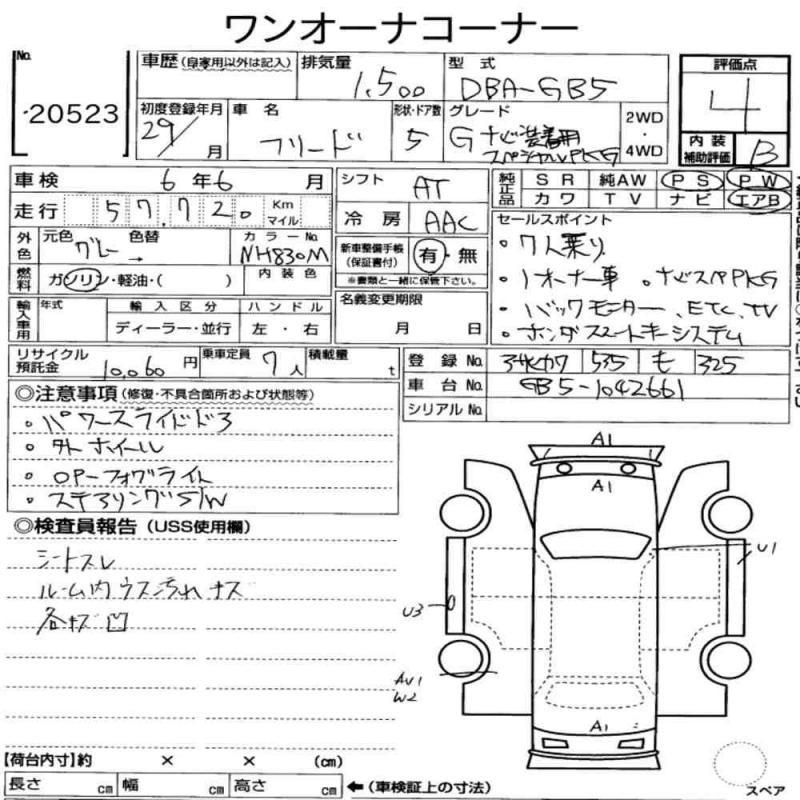 ワンオーナコーナー
No. 20523
車歴(自家用以外は記入) 排気量 1,500 型式 DBA-GB5 評価点 4
初度登録年月 29/ 月 車名 フリード 形状・ドア数 5 グレード G ナビ装着用スペシャルPKG 2WD・4WD 内装補助評価 B
車検 6年6月 シフト AT 純正品 SR 純AW PS PW
走行 57,720 Km マイル 冷房 AAC カワ TV ナビ エアB
外色 元色 グレー 色替 → カラーNo. NH830M 新車整備手帳(保証書付) 有・無 ※書類と一緒に保管下さい。
セールスポイント
・7人乗り
・1オーナー車 ・ナビスペPKG
・バックモニター、ETC、TV
・ホンダスマートキーシステム
燃料 ガソリン・軽油・( ) 内装色
輸入車用 年式 輸入区分 ハンドル 名義変更期限
ディーラー・並行 左・右 月 日
リサイクル預託金 10,060円 乗車定員 7人 積載量 t 登録No. 535 も 325
車台No. GB5-1042661
シリアルNo.
◎注意事項(修復・不具合箇所および状態等)
・パワースライドドア
・外ホイール
・OPーフォグライト
・ステアリングS/W
◎検査員報告(USS使用欄)
シートスレ
ルーム内ウス汚れ キズ
各キズ凹
A1
A1
U1
U3
AU1
W2
A1
【荷台内寸】約 × × (cm)
長さ cm 幅 cm 高さ cm ←(車検証上の寸法)
スペア